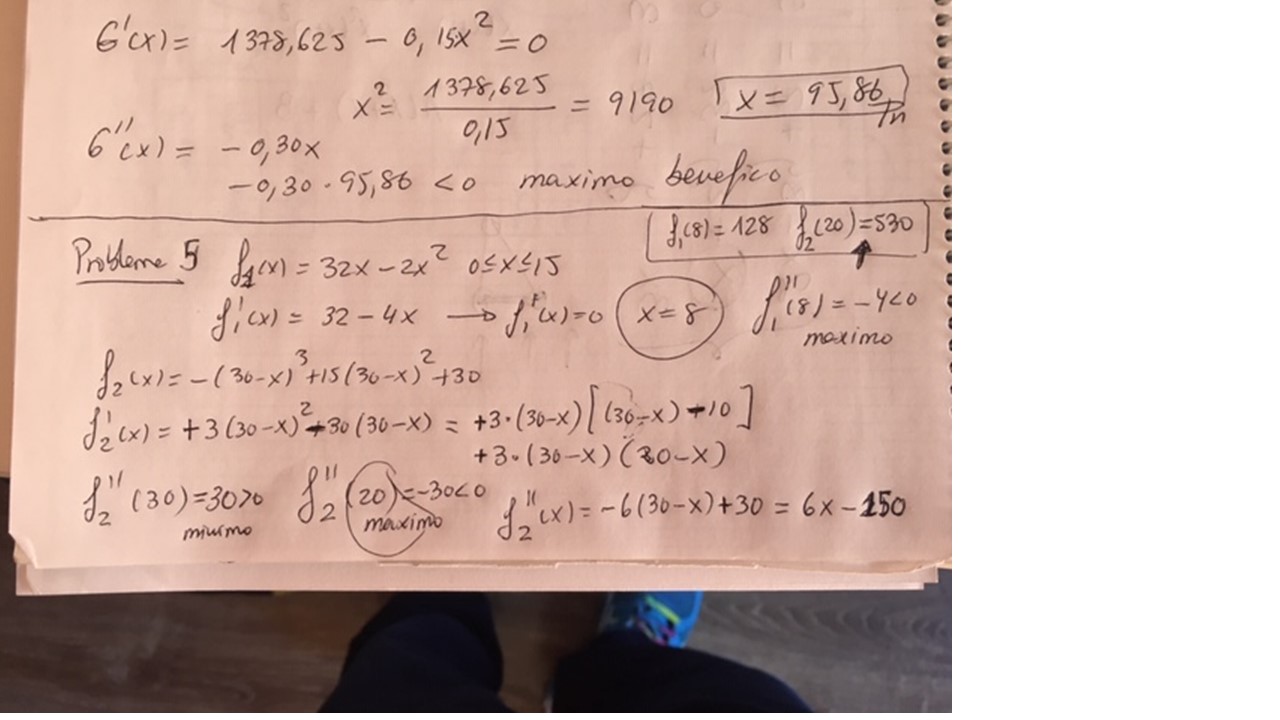 G'(x) = 1378,625 - 0,15x² = 0
x² = 1378,625 / 0,15 = 9190 x = 95,86 Tn
G''(x) = -0,30x
-0,30 · 95,86 < 0 maximo benefico
f₁(8) = 128 f₂(20) = 530
Probleme 5 f₁(x) = 32x - 2x² 0≤x≤15
f₁'(x) = 32 - 4x → f₁'(x) = 0 x = 8 f₁''(8) = -4<0
maximo
f₂(x) = -(30-x)³ + 15(30-x)² + 30
f₂'(x) = +3(30-x)² - 30(30-x) = +3·(30-x)[(30-x) - 10]
+3·(30-x)(20-x)
f₂''(30) = 30>0 f₂''(20) = -30<0 f₂''(x) = -6(30-x) + 30 = 6x - 150
minimo maximo